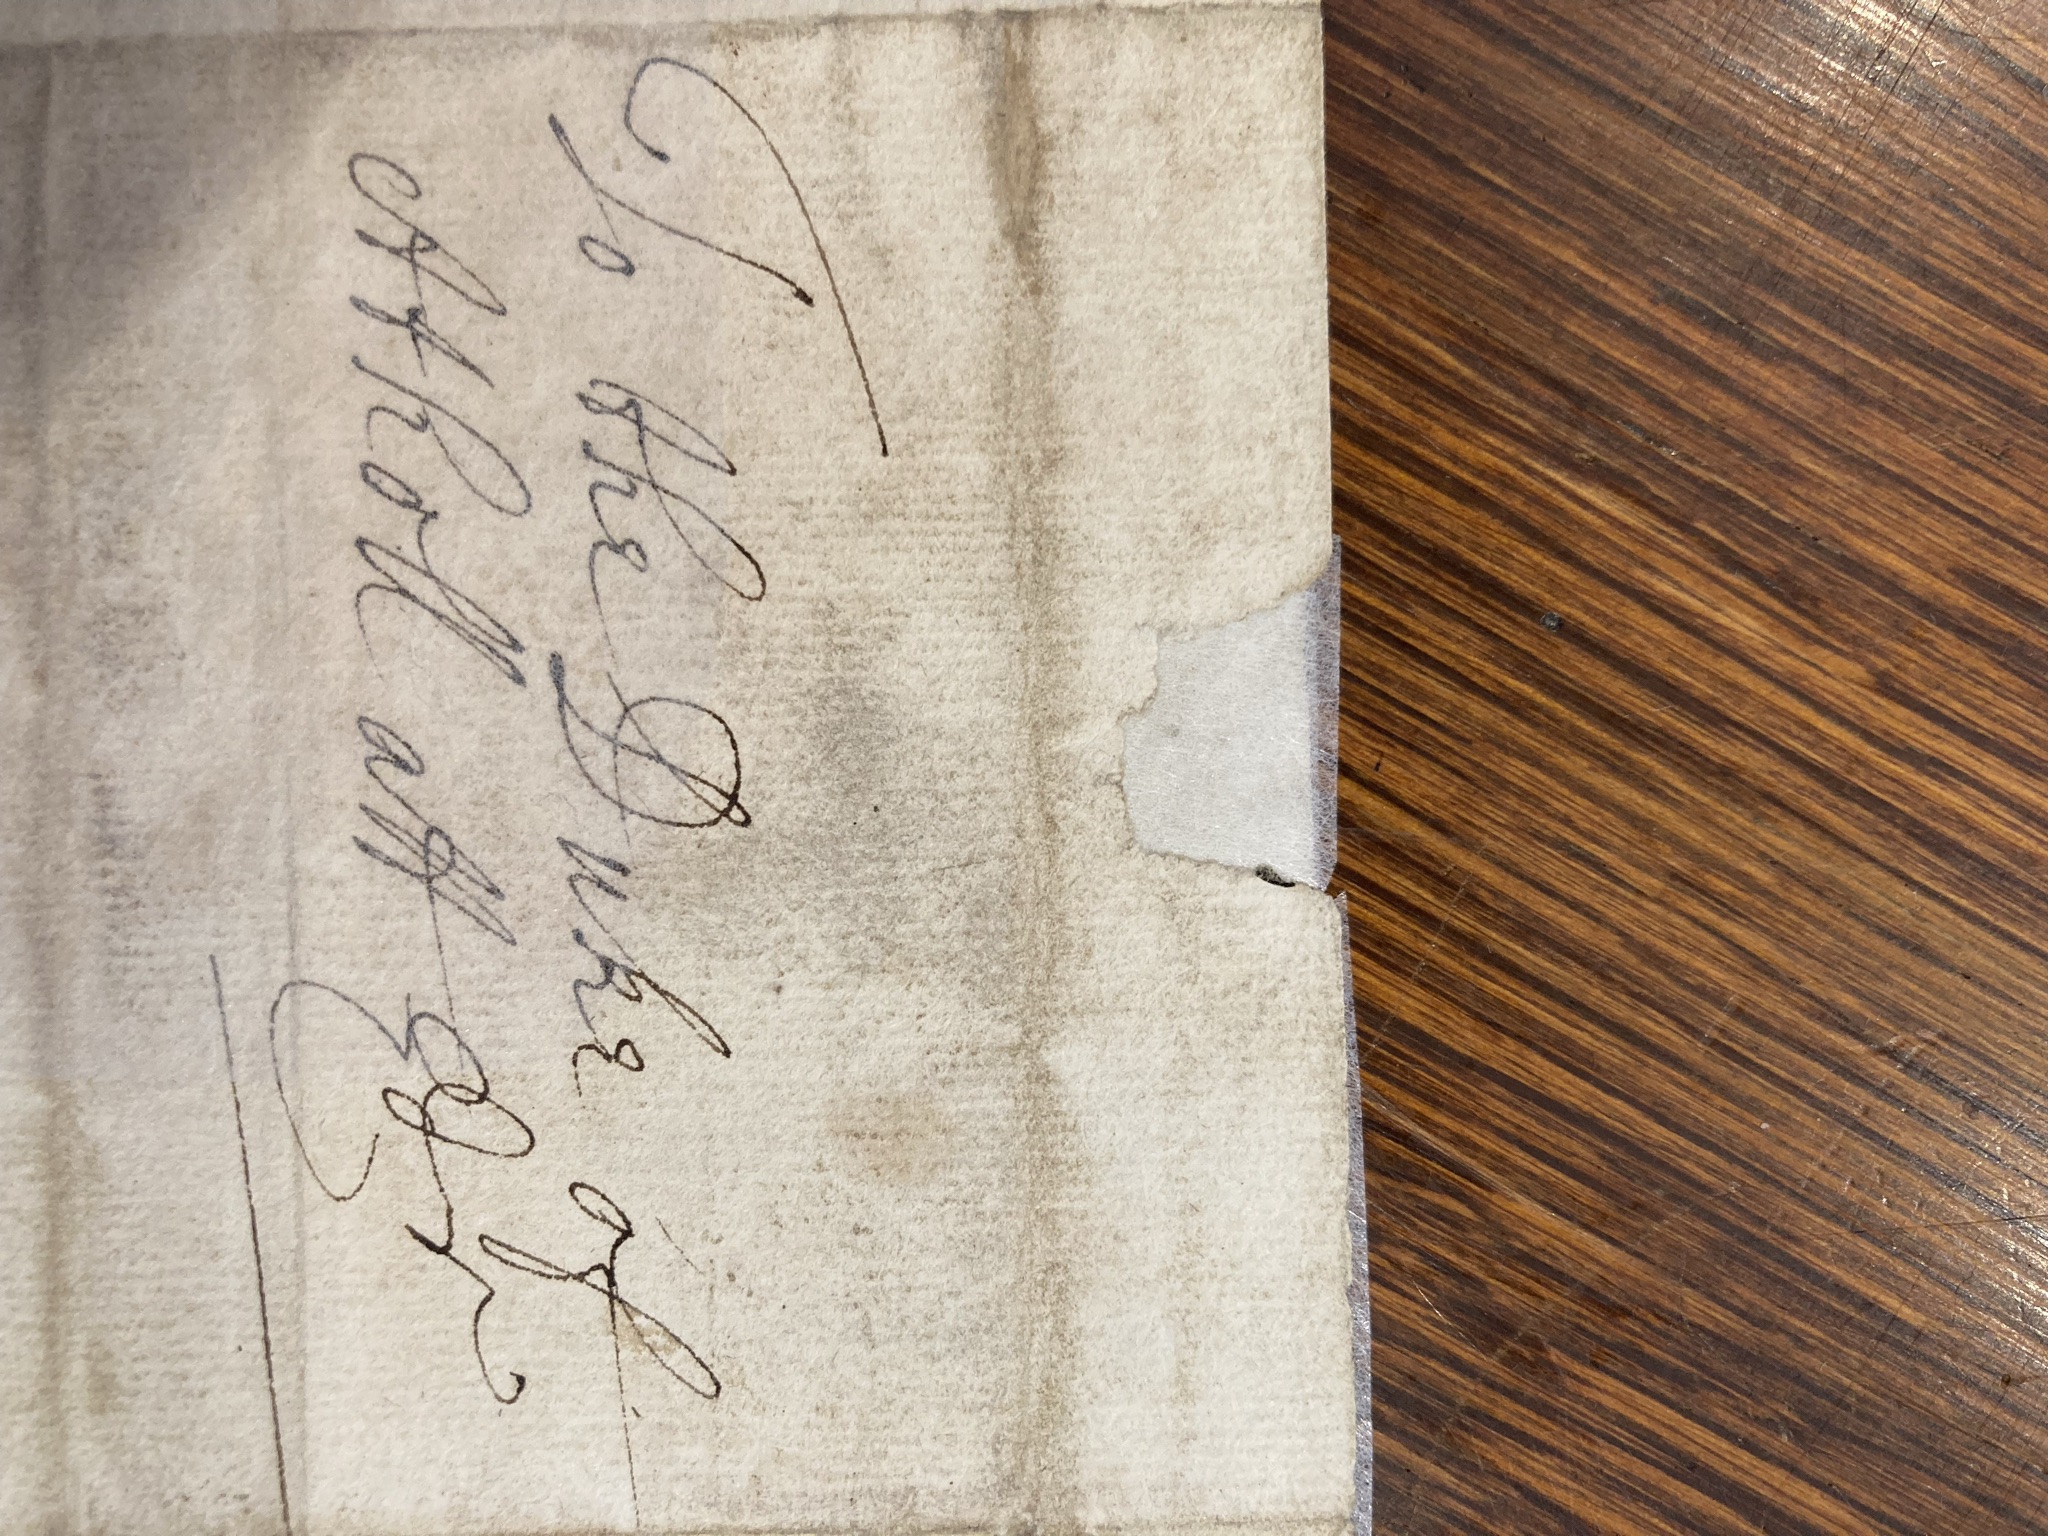 To the Duke of
Atholl att Edr